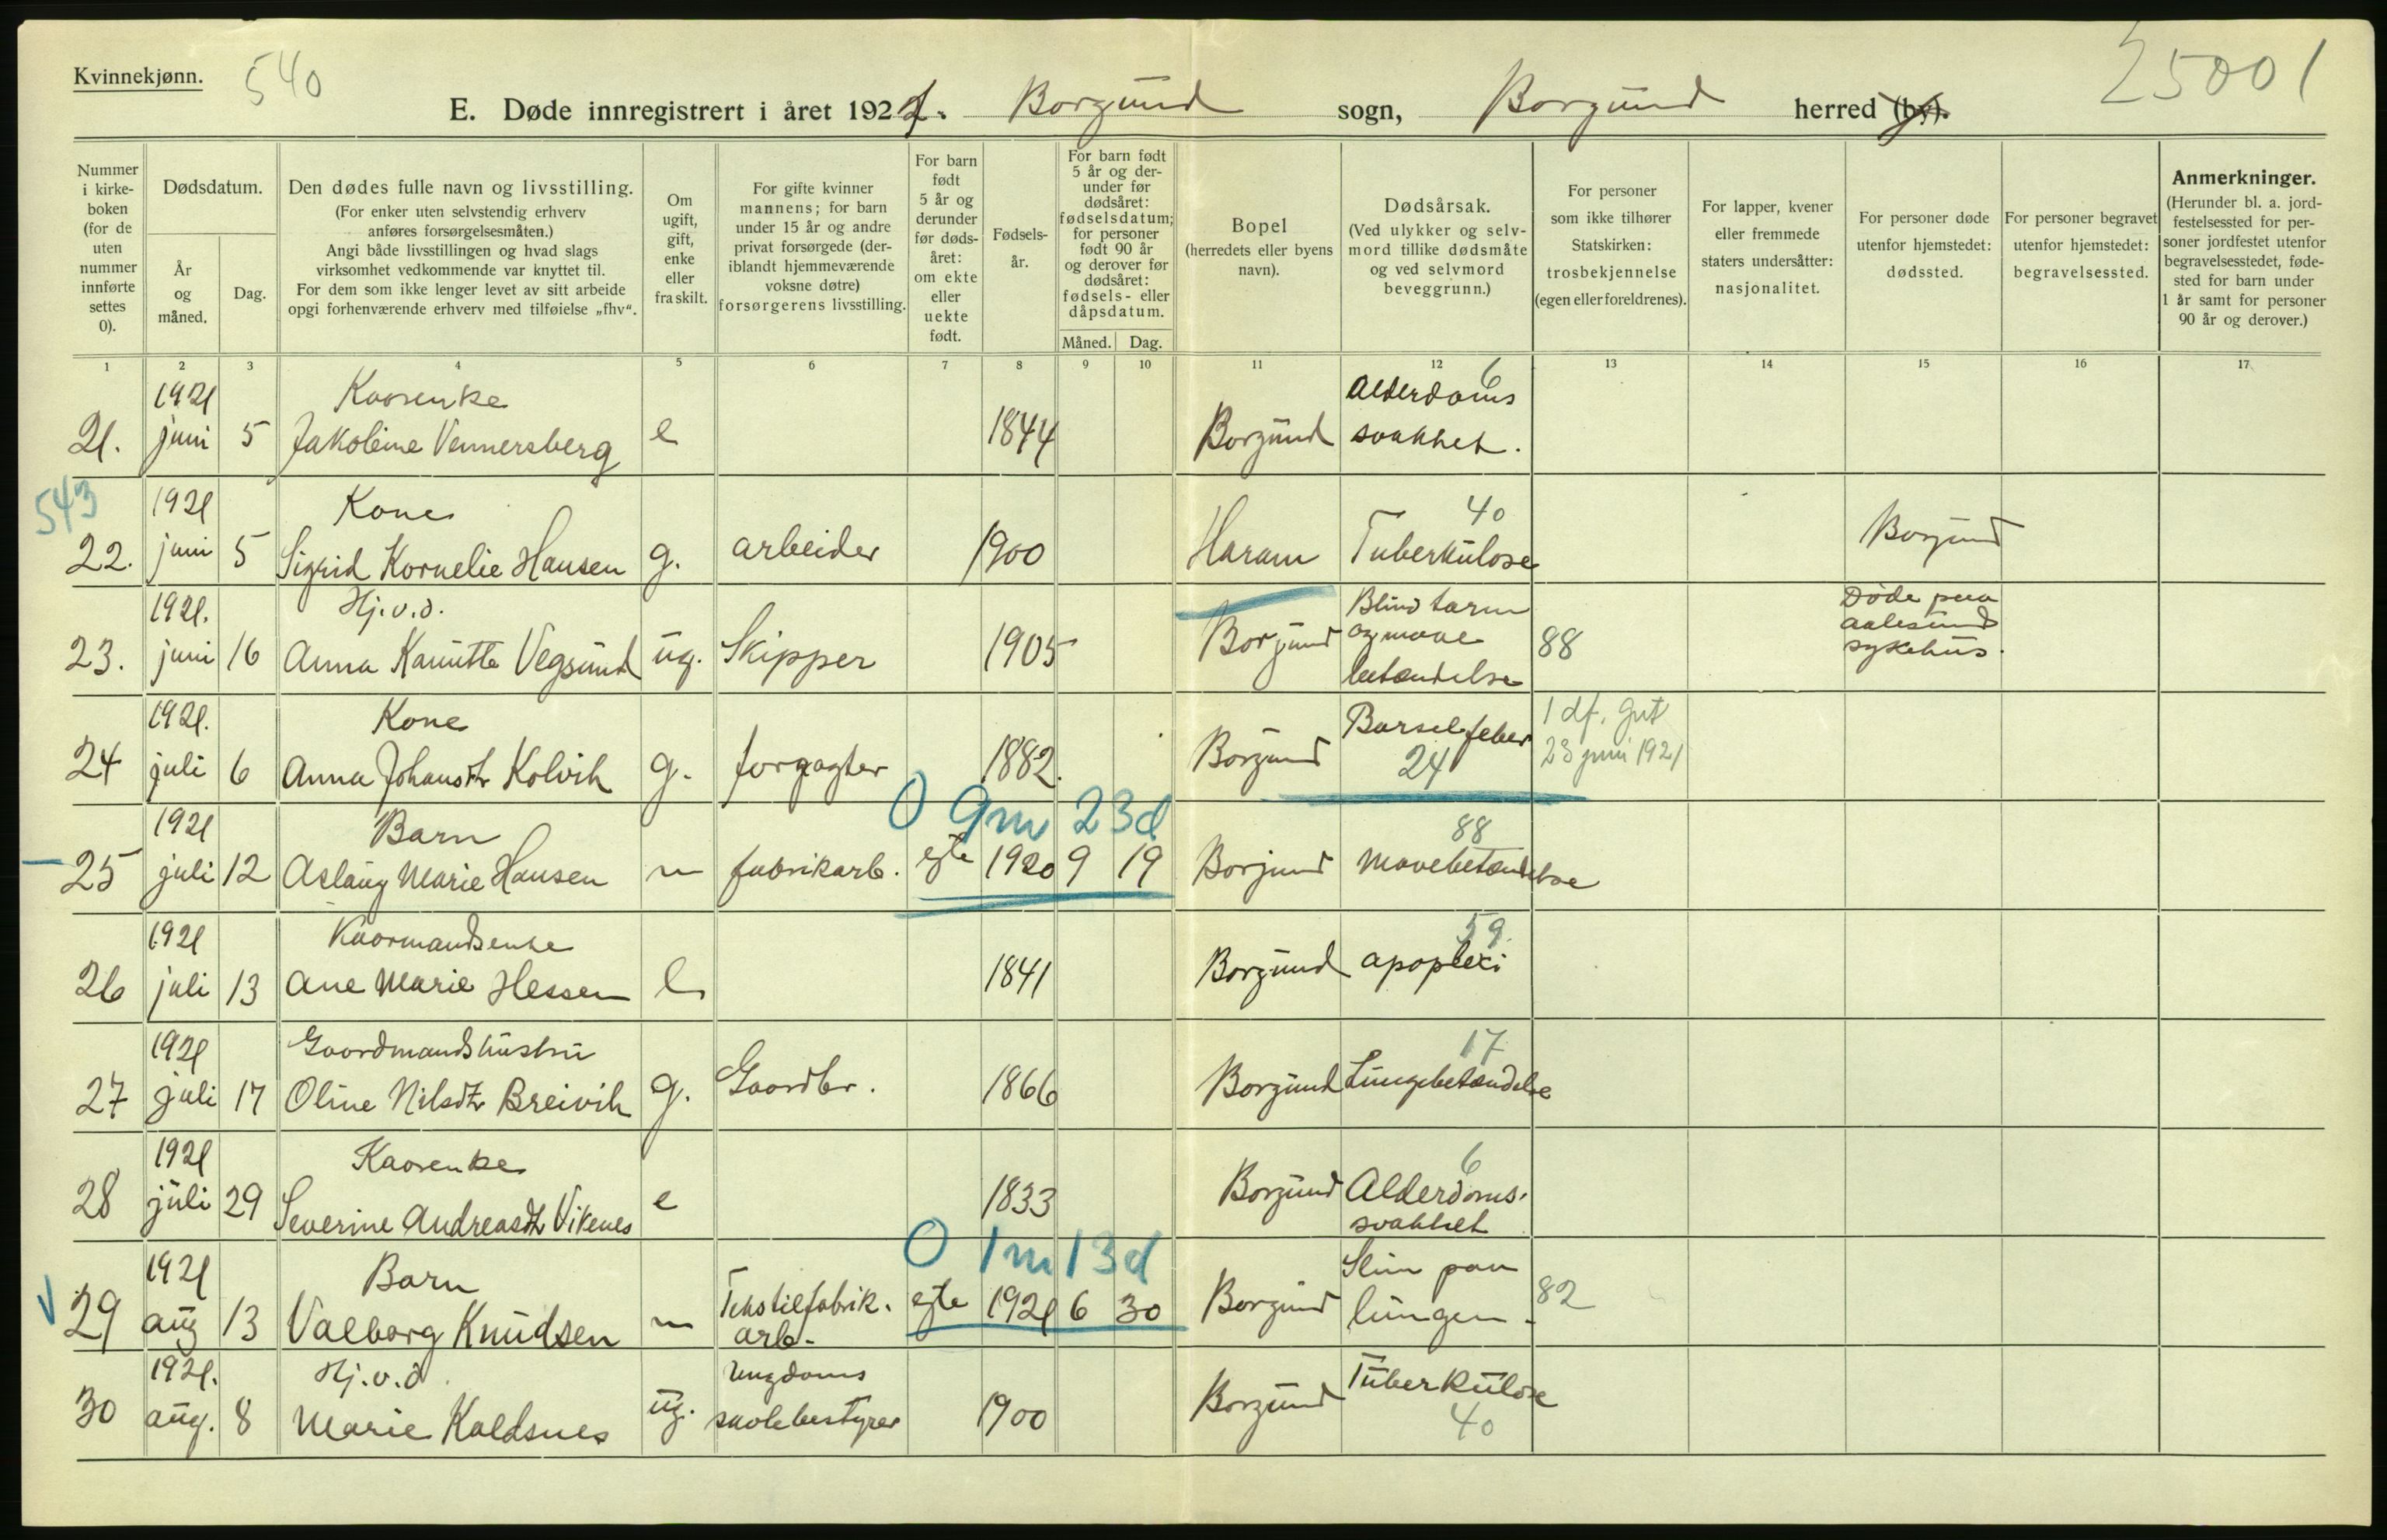 Kvinnekjønn.
540
25001
E. Døde innregistrert i året 1921. Borgund sogn, Borgund herred (by).
Nummer i kirke- boken (for de uten nummer innførte settes 0).
Dødsdatum.
År og måned.
Dag.
Den dødes fulle navn og livsstilling.
(For enker uten selvstendig erhverv anføres forsørgelsesmåten.)
Angi både livsstillingen og hvad slags virksomhet vedkommende var knyttet til.
For dem som ikke lenger levet av sitt arbeide opgi forhenværende erhverv med tilføielse „fhv“.
Om ugift, gift, enke eller fraskilt.
For gifte kvinner mannens; for barn under 15 år og andre privat forsørgede (der- iblandt hjemmeværende voksne døtre) forsørgerens livsstilling.
For barn født 5 år og derunder før døds- året: om ekte eller uekte født.
Fødsels- år.
For barn født 5 år og der- under før dødsåret: fødselsdatum; for personer født 90 år og derover før dødsåret: fødsels- eller dåpsdatum.
Måned.
Dag.
Bopel
(herredets eller byens navn).
Dødsårsak.
(Ved ulykker og selv- mord tillike dødsmåte og ved selvmord beveggrunn.)
For personer som ikke tilhører Statskirken: trosbekjennelse (egen eller foreldrenes).
For lapper, kvener eller fremmede staters undersåtter: nasjonalitet.
For personer døde utenfor hjemstedet: dødssted.
For personer begravet utenfor hjemstedet: begravelsessted.
Anmerkninger.
(Herunder bl. a. jord- festelsessted for per- soner jordfestet utenfor begravelsesstedet, føde- sted for barn under 1 år samt for personer 90 år og derover.)
1 2 3 4 5 6 7 8 9 10 11 12 13 14 15 16 17
1921 Kaarenke 6 Alderdoms
21. juni 5 Jakoline Vennersberg e 1844 Borgund svakhet.
543
1921 Kone 40
22. juni 5 Sigrid Kornelie Hansen g. arbeider 1900 Haram Tuberkulose Borgund
1921. Hj.v.d. Blindtarm Døde paa
23. juni 16 Anna Kanutte Vegsund ug. Skipper 1905 Borgund og mave 88 aalesund
betændelse sykehus.
1921. Kone Barselfeber 1 df. gut
24 juli 6 Anna Johansdtr Kolvik g. forpagter 1882. Borgund 24 23 juni 1921
0 9m 23d
1921 Barn 88
25 juli 12 Aslaug Marie Hansen fabrikarb. egte 1920 9 19 Borgund Mavebetændelse
1921 Kaarmandsenke 59.
26 juli 13 Ane Marie Hessen e 1841 Borgund apoplexi
1921 Gaardmandshustru 17
27 juli 17 Oline Nilsdtr Breivik g. Gaardbr. 1866 Borgund Lungebetændelse
1921 Kaarenke 6
28 juli 29 Severine Andreasdtr Vikenes e 1833 Borgund Alderdoms-
svakhet
0 1m 13d
1921 Barn Slim paa
29 aug 13 Valborg Knudsen Tekstilfabrik. egte 1921 6 30 Borgund lungen. 82
arb.
1921. Hj.v.d. Ungdoms Tuberkulose
30 aug. 8 Marie Kaldsnes ug. skolebestyrer 1900 Borgund 40